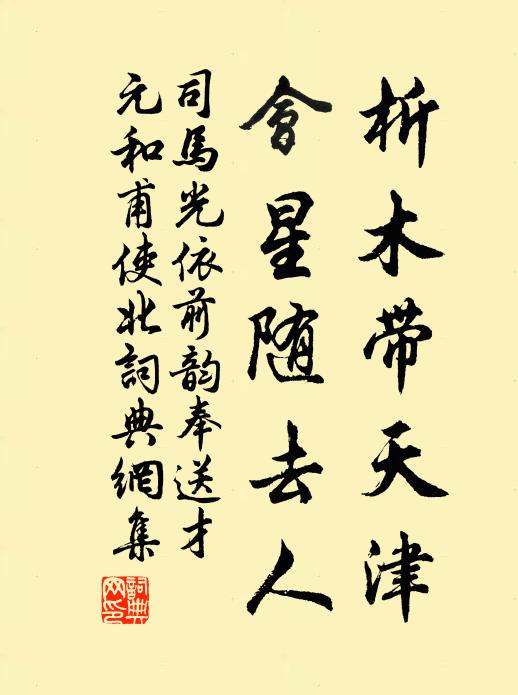 析木带天津
會星随去人
司馬光依前韵奉送才
元和甫使北詞典網集
詞典网印